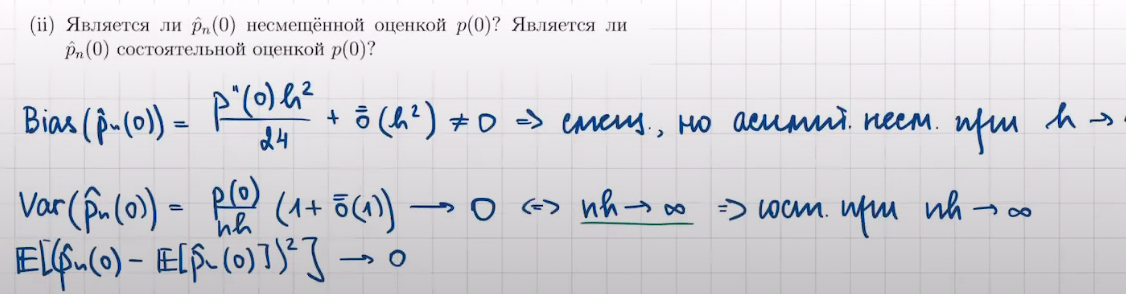 (ii) Является ли p̂ₙ(0) несмещённой оценкой p(0)? Является ли
p̂ₙ(0) состоятельной оценкой p(0)?
Bias(p̂ₙ(0)) = p''(0)h²/24 + ō(h²) ≠ 0 => смещ., но асимпт. несм. при h →
Var(p̂ₙ(0)) = p(0)/nh (1 + ō(1)) → 0 <=> nh → ∞ => сост. при nh → ∞
𝔼[(p̂ₙ(0) - 𝔼[p̂ₙ(0)])²] → 0